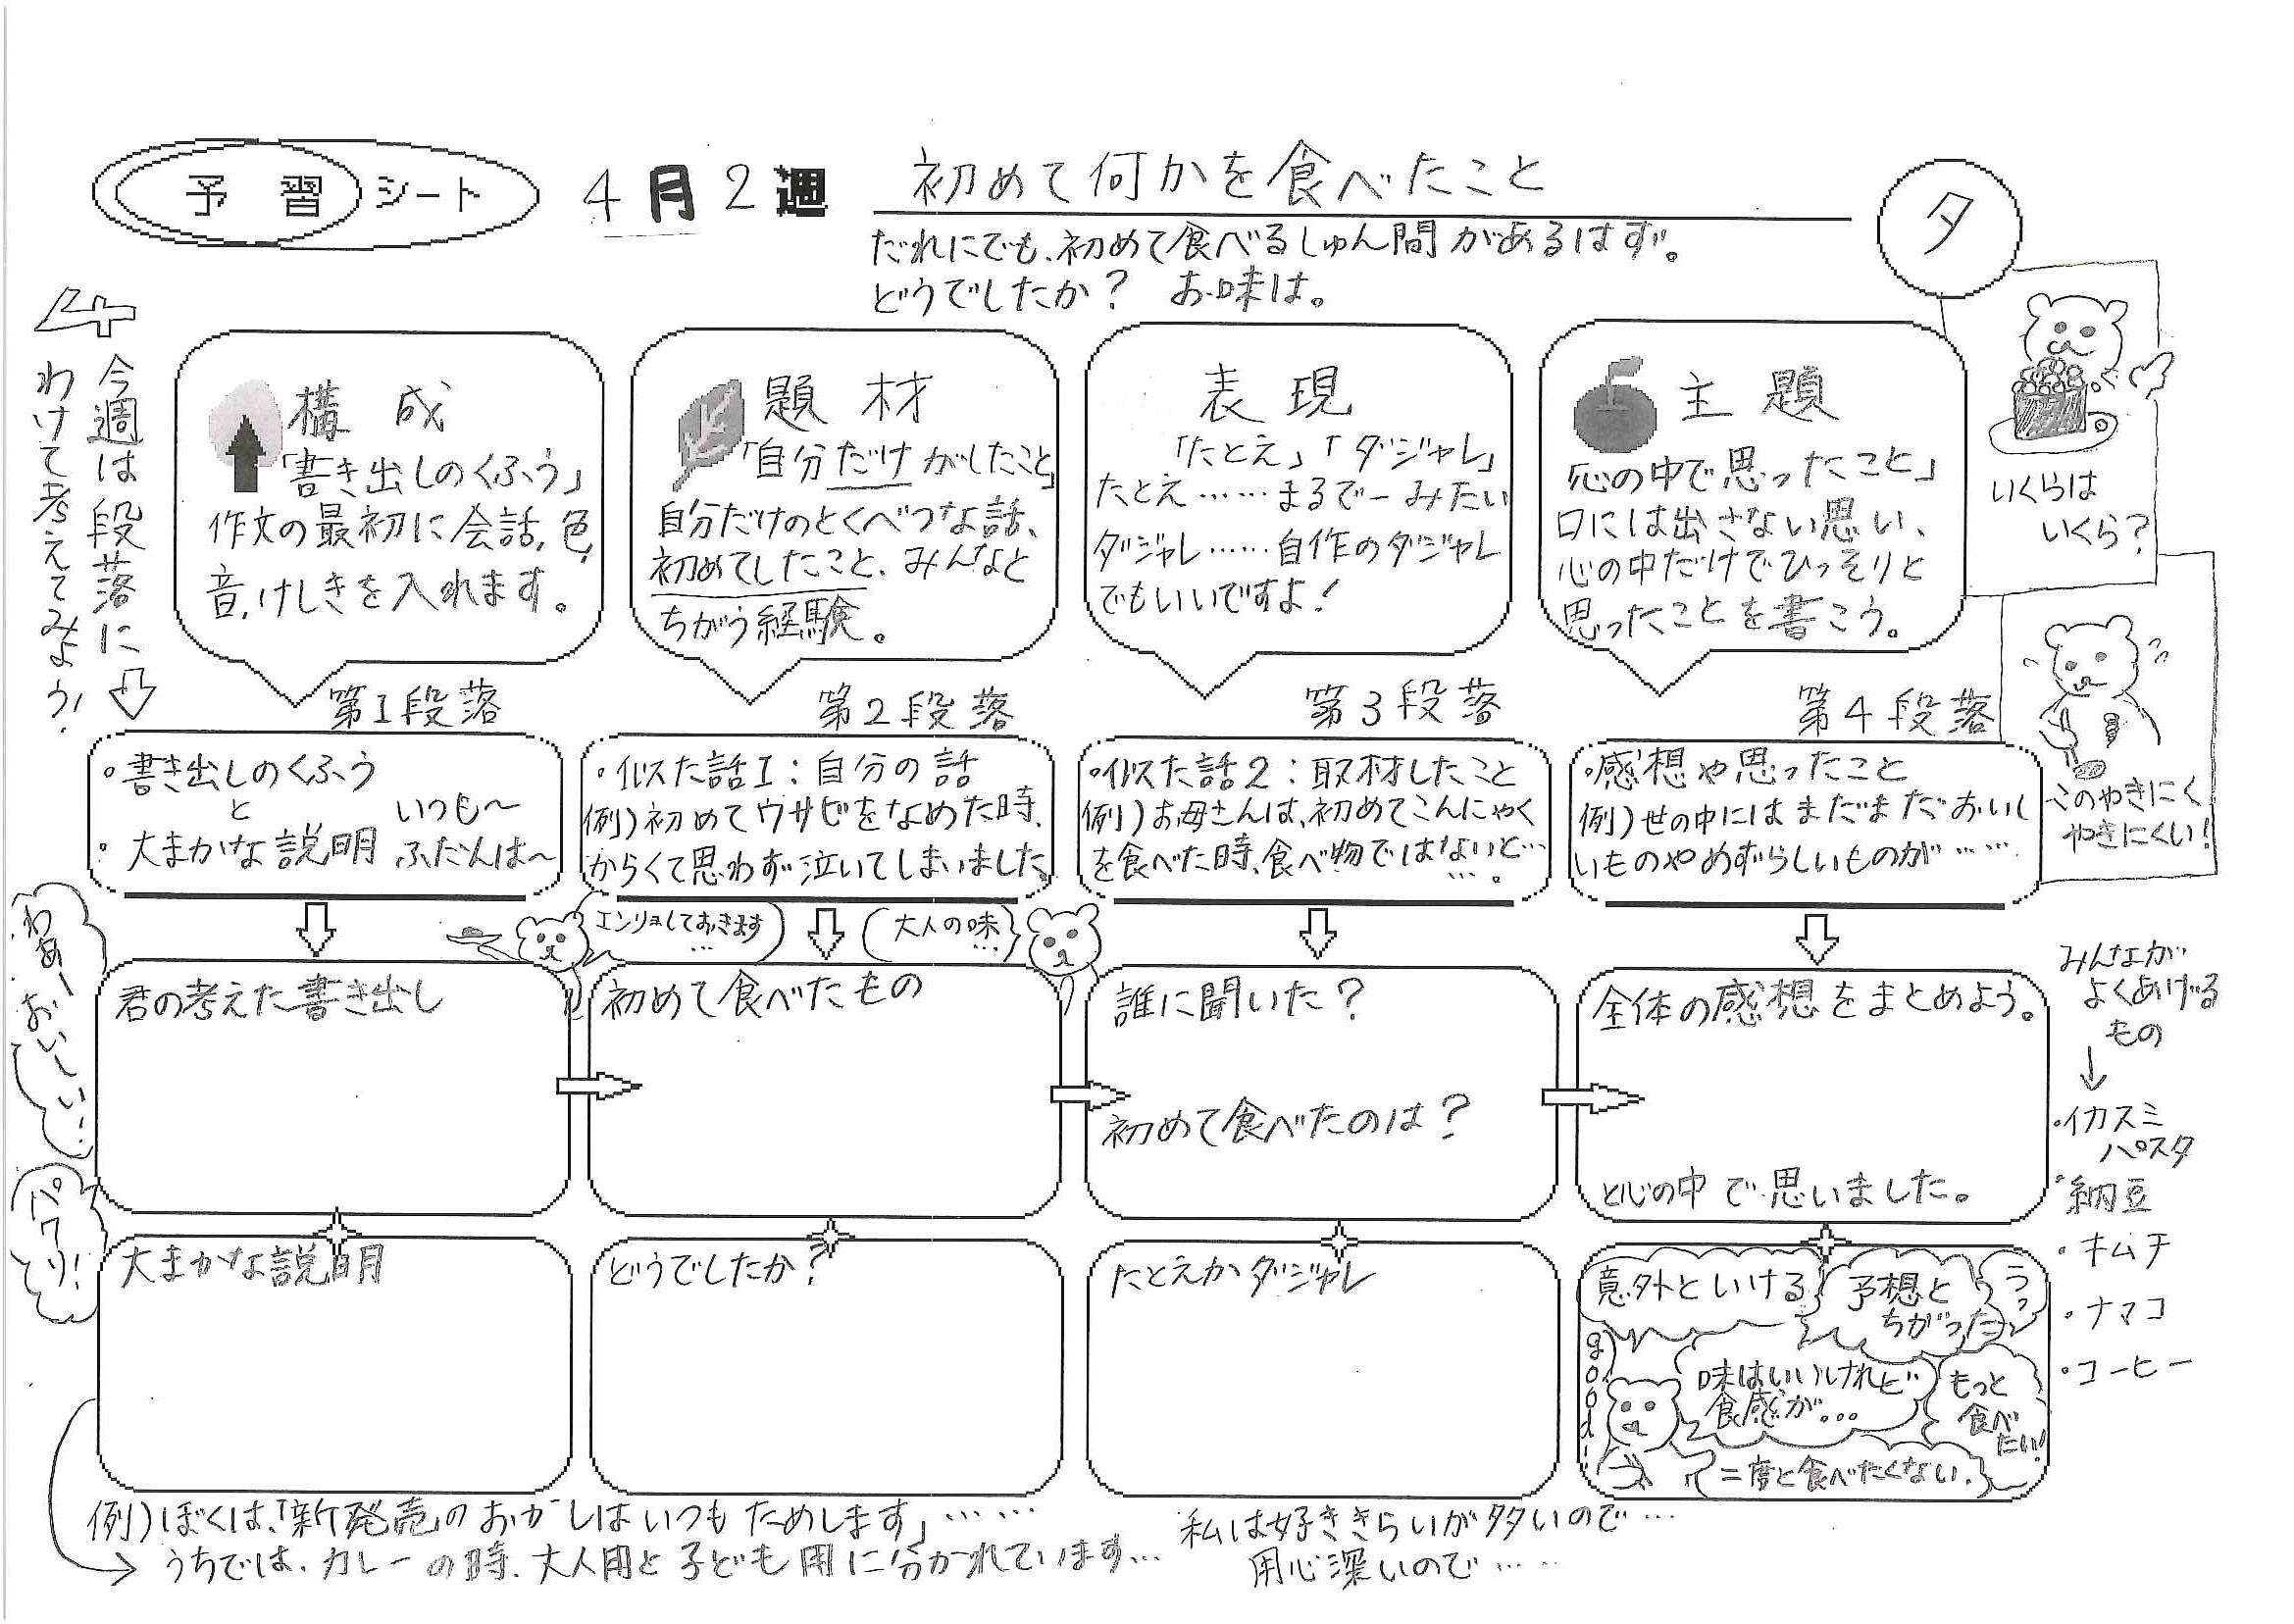 予習シート
4月2週
初めて何かを食べたこと
夕
だれにでも、初めて食べるしゅん間があるはず。
どうでしたか？ お味は。
今週は段落に
わけて考えてみよう！
構成
「書き出しのくふう」
作文の最初に会話、色、
音、けしきを入れます。
題材
「自分だけがしたこと」
自分だけのとくべつな話、
初めてしたこと、みんなと
ちがう経験。
表現
「たとえ」「ダジャレ」
たとえ……まるで－みたい
ダジャレ……自作のダジャレ
でもいいですよ！
主題
「心の中で思ったこと」
口には出さない思い、
心の中だけでひっそりと
思ったことを書こう。
いくらは
いくら？
このやきにく
やきにくい！
第1段落
・書き出しのくふう
と
・大まかな説明
いつも～
ふだんは～
第2段落
・似た話1：自分の話
例）初めてワサビをなめた時、
からくて思わず泣いてしまいました。
第3段落
・似た話2：取材したこと
例）お母さんは、初めてこんにゃく
を食べた時、食べ物ではないと…
…。
第4段落
・感想や思ったこと
例）世の中にはまだまだおいし
いものやめずらしいものが……
エンリョしておきます
…
大人の味
…
わあーおいしい…
パクリ！
君の考えた書き出し
初めて食べたもの
誰に聞いた？
初めて食べたのは？
全体の感想をまとめよう。
と心の中で思いました。
大まかな説明
どうでしたか？
たとえかダジャレ
意外といける
予想と
ちがった
うっ
good!
味はいいけれど
食感が…
もっと
食べ
たい！
二度と食べたくない。
みんなが
よくあげる
もの
・イカスミ
パスタ
・納豆
・キムチ
・ナマコ
・コーヒー
例）ぼくは、「新発売のおかしはいつもためします」……
うちでは、カレーの時、大人用と子ども用に分かれています…
私は好ききらいが多いので…
用心深いので……